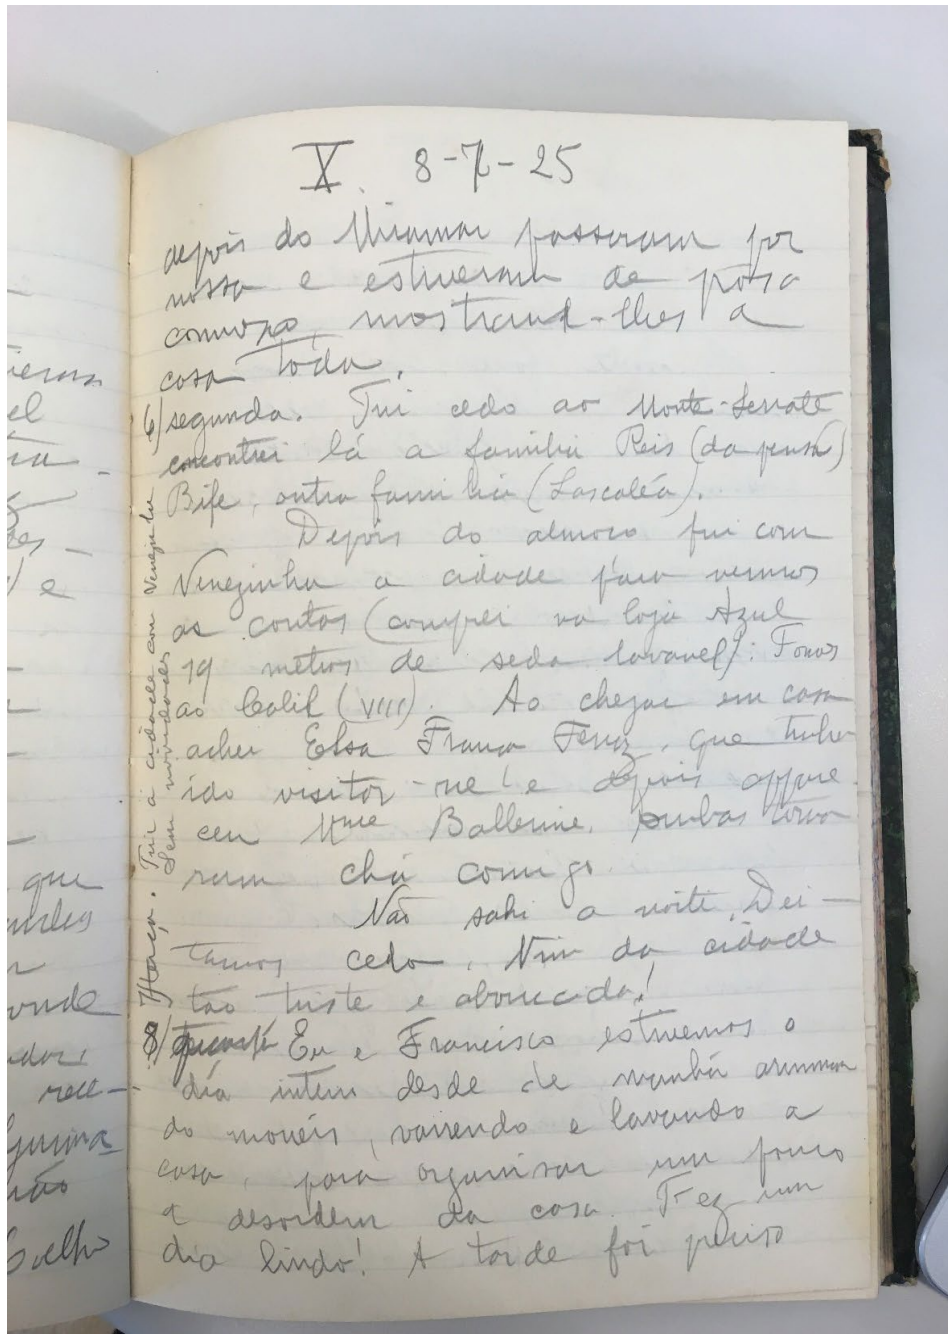 X. 8-7-25
depois do Miramar passaram por
nossa e estiveram de prosa
comnosco, mostrand-lhes a
casa tôda.
6) segunda. Fui cedo ao Monte-Serrate
encontrei lá a familia Reis (da pensã)
Bife, outra familia (Lascaléa).
Depois do almoco fui com
Venezinha a cidade para vermos
as contas (comprei na loja Azul
19 metros de seda lavavel): Fomos
ao Calil (VIII). Ao chegar em casa
achei Elsa França Ferraz, que tinha
ido visitar-me! e depois appare
ceu Mme Ballerine, ambas toma
ram chá comigo.
Não sahi a noite. Dei-
tamos cedo. Vim da cidade
tão triste e aborrecida!
7) Terça. Fui a cidade com Venezinha
Sem novidades
8) Eu e Francisco estivemos o
dia inteiro desde de manhã arruman
do moveis, varrendo e lavando a
casa, para organisar um pouco
a desordem da casa. Fez um
dia lindo! A tarde foi preciso
ieram
el
ria
e
que
onde
rece-
não
Coelho